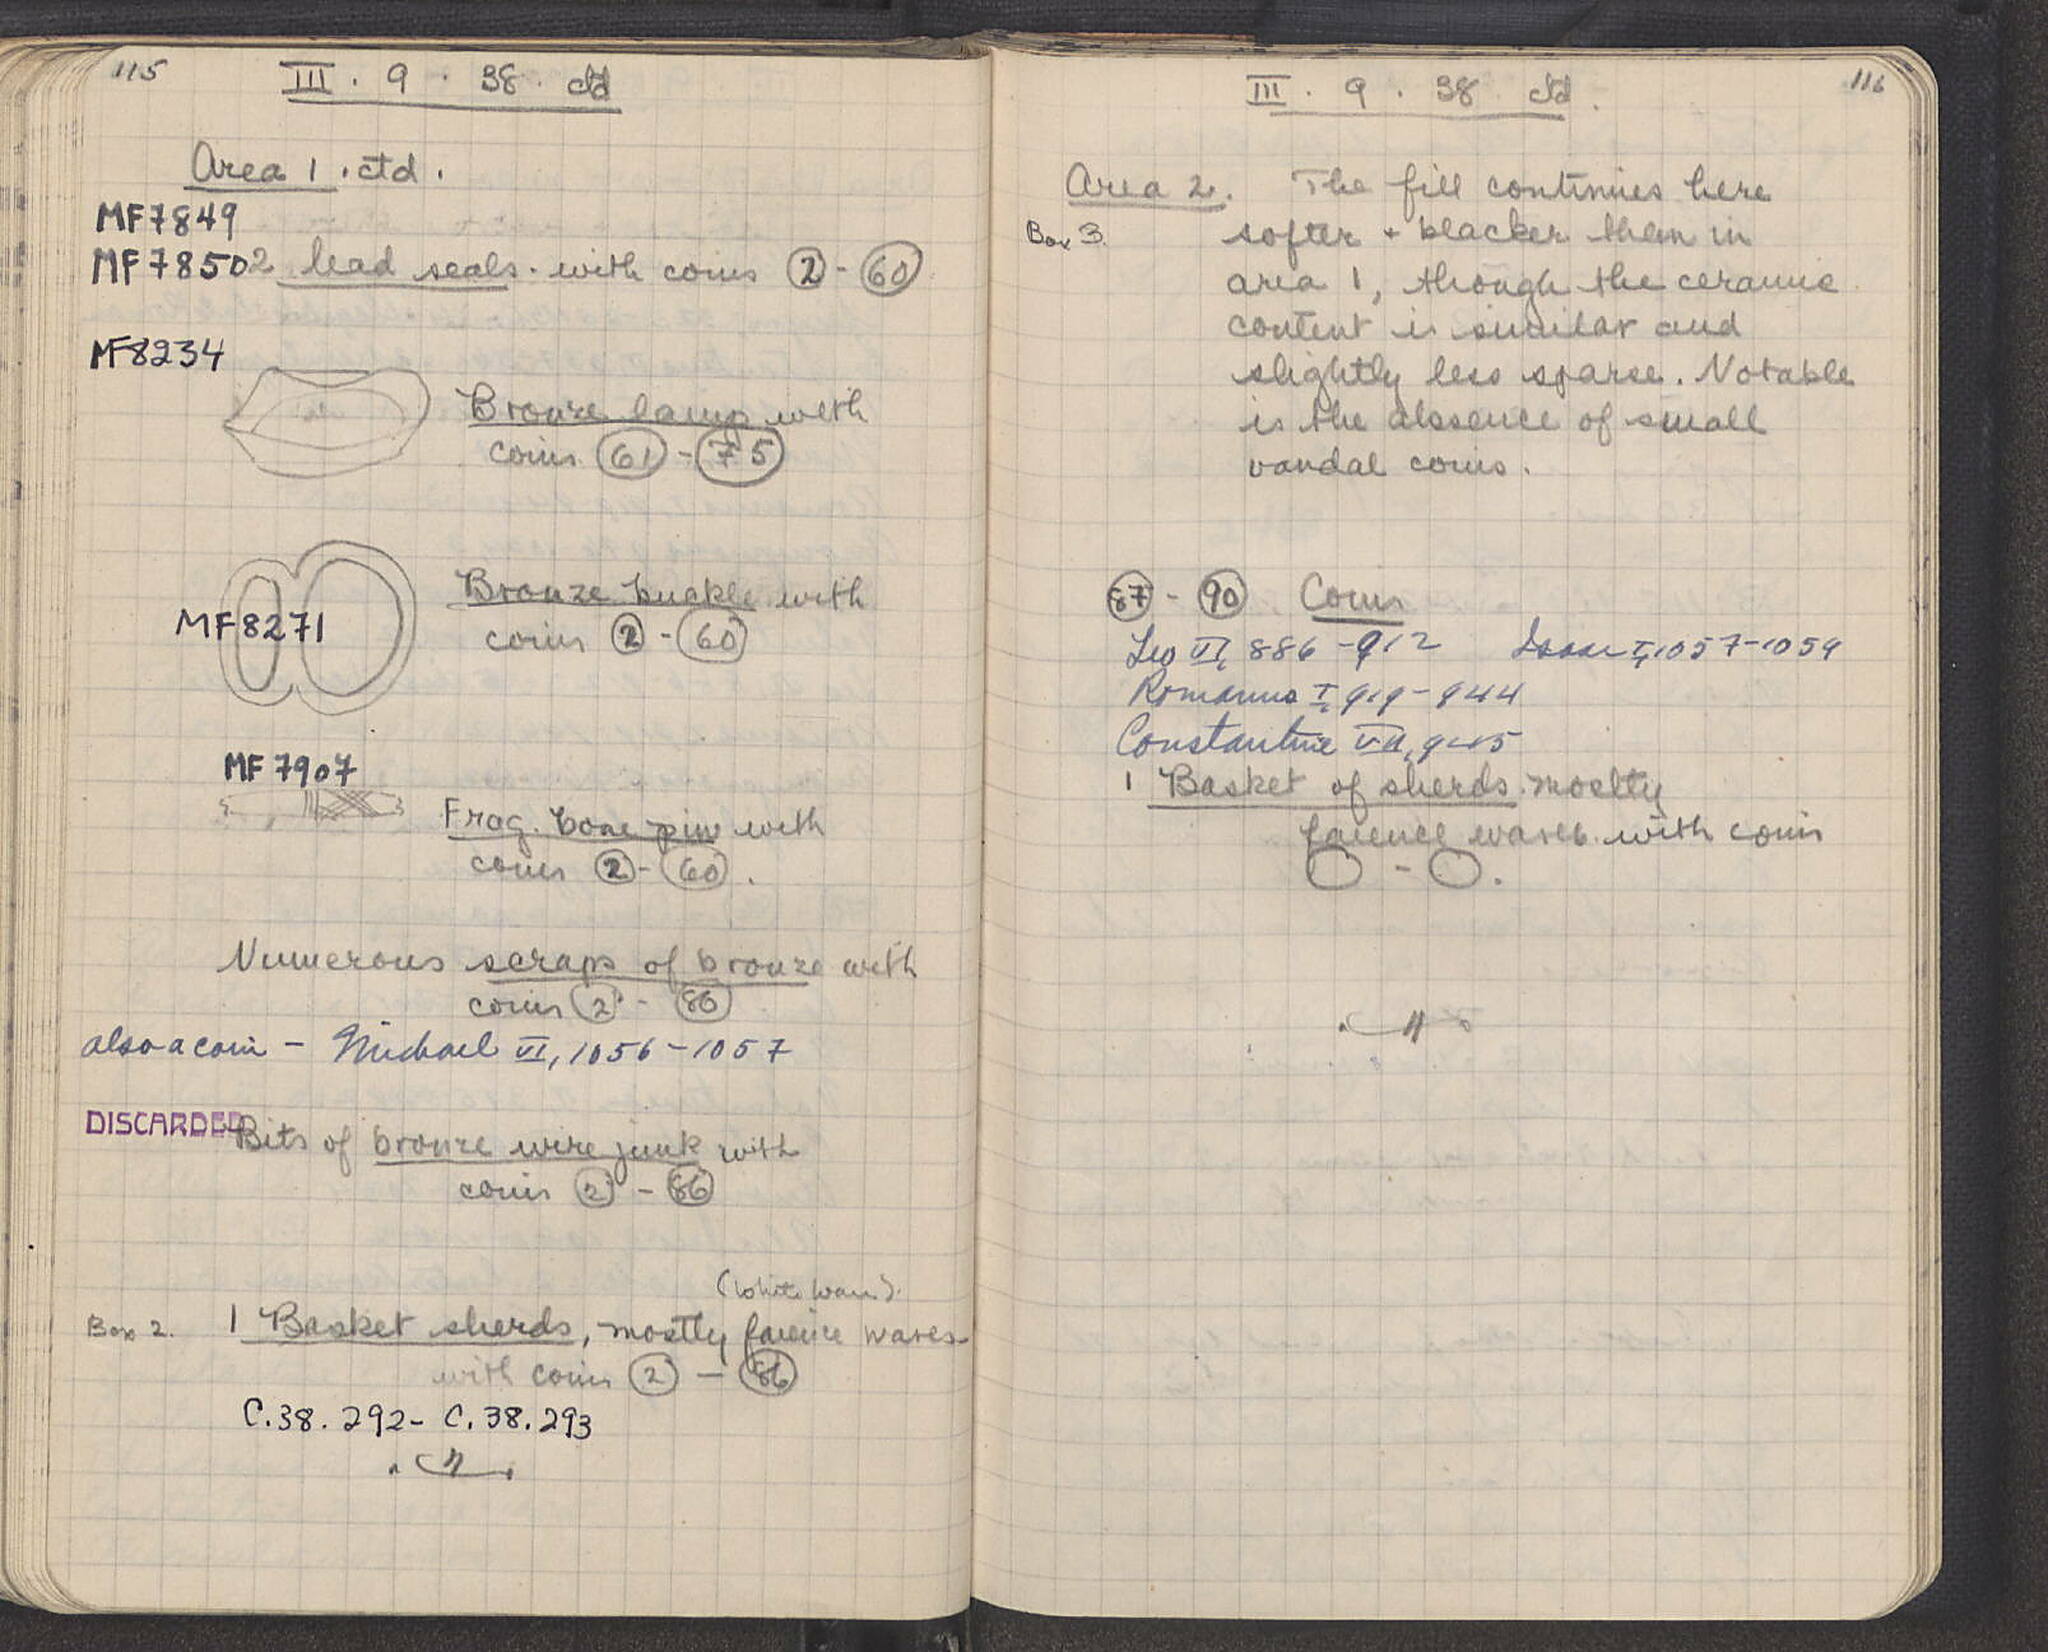 115
III . 9 . 38 . ctd
Area 1 . ctd .
MF7849
MF7850 2 lead seals . with coins 2 - 60
MF8234
Bronze lamp with
coins 61 - 75
Bronze buckle with
MF8271
coins 2 - 60
MF7907
Frag. bone pin with
coins 2 - 60 .
Numerous scraps of bronze with
coins 2 - 86
also a coin - Michael VI, 1056-1057
DISCARDED
Bits of bronze wire junk with
coins 2 - 86
(White Ware).
Box 2. 1 Basket sherds, mostly faience wares
with coins 2 - 86
C.38.292- C.38.293
116
III . 9 . 38 ctd .
Area 2. The fill continues here
Box 3. softer + blacker than in
area 1, though the ceramic
content is similar and
slightly less sparse. Notable
is the absence of small
vandal coins.
87 - 90 Coins
Leo VI, 886-912 Isaac I, 1057-1059
Romanus I, 919-944
Constantine VII, 945
1 Basket of sherds mostly
faience wares with coins